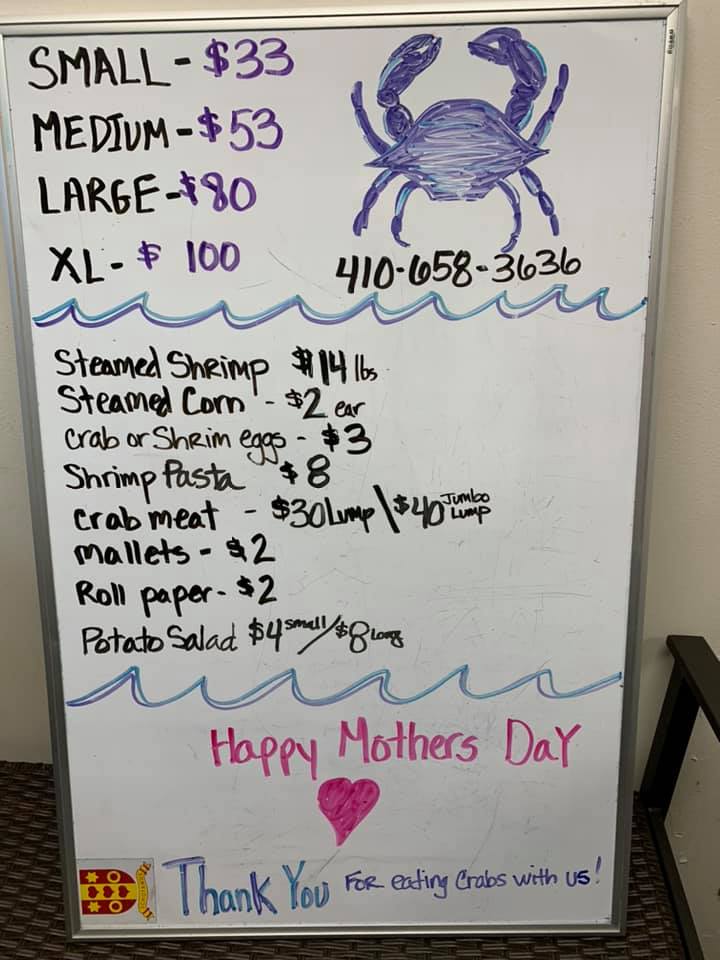 SMALL - $33
MEDIUM - $53
LARGE - $80
XL - $ 100
410-658-3636
Steamed Shrimp $14 lbs
Steamed Corn - $2 ear
Crab or Shrim eggs - $3
Shrimp Pasta $8
Crab meat - $30 Lump \ $40 Jumbo Lump
mallets - $2
Roll paper - $2
Potato Salad $4 small / $8 Larg
Happy Mothers Day
Thank You For eating Crabs with us!